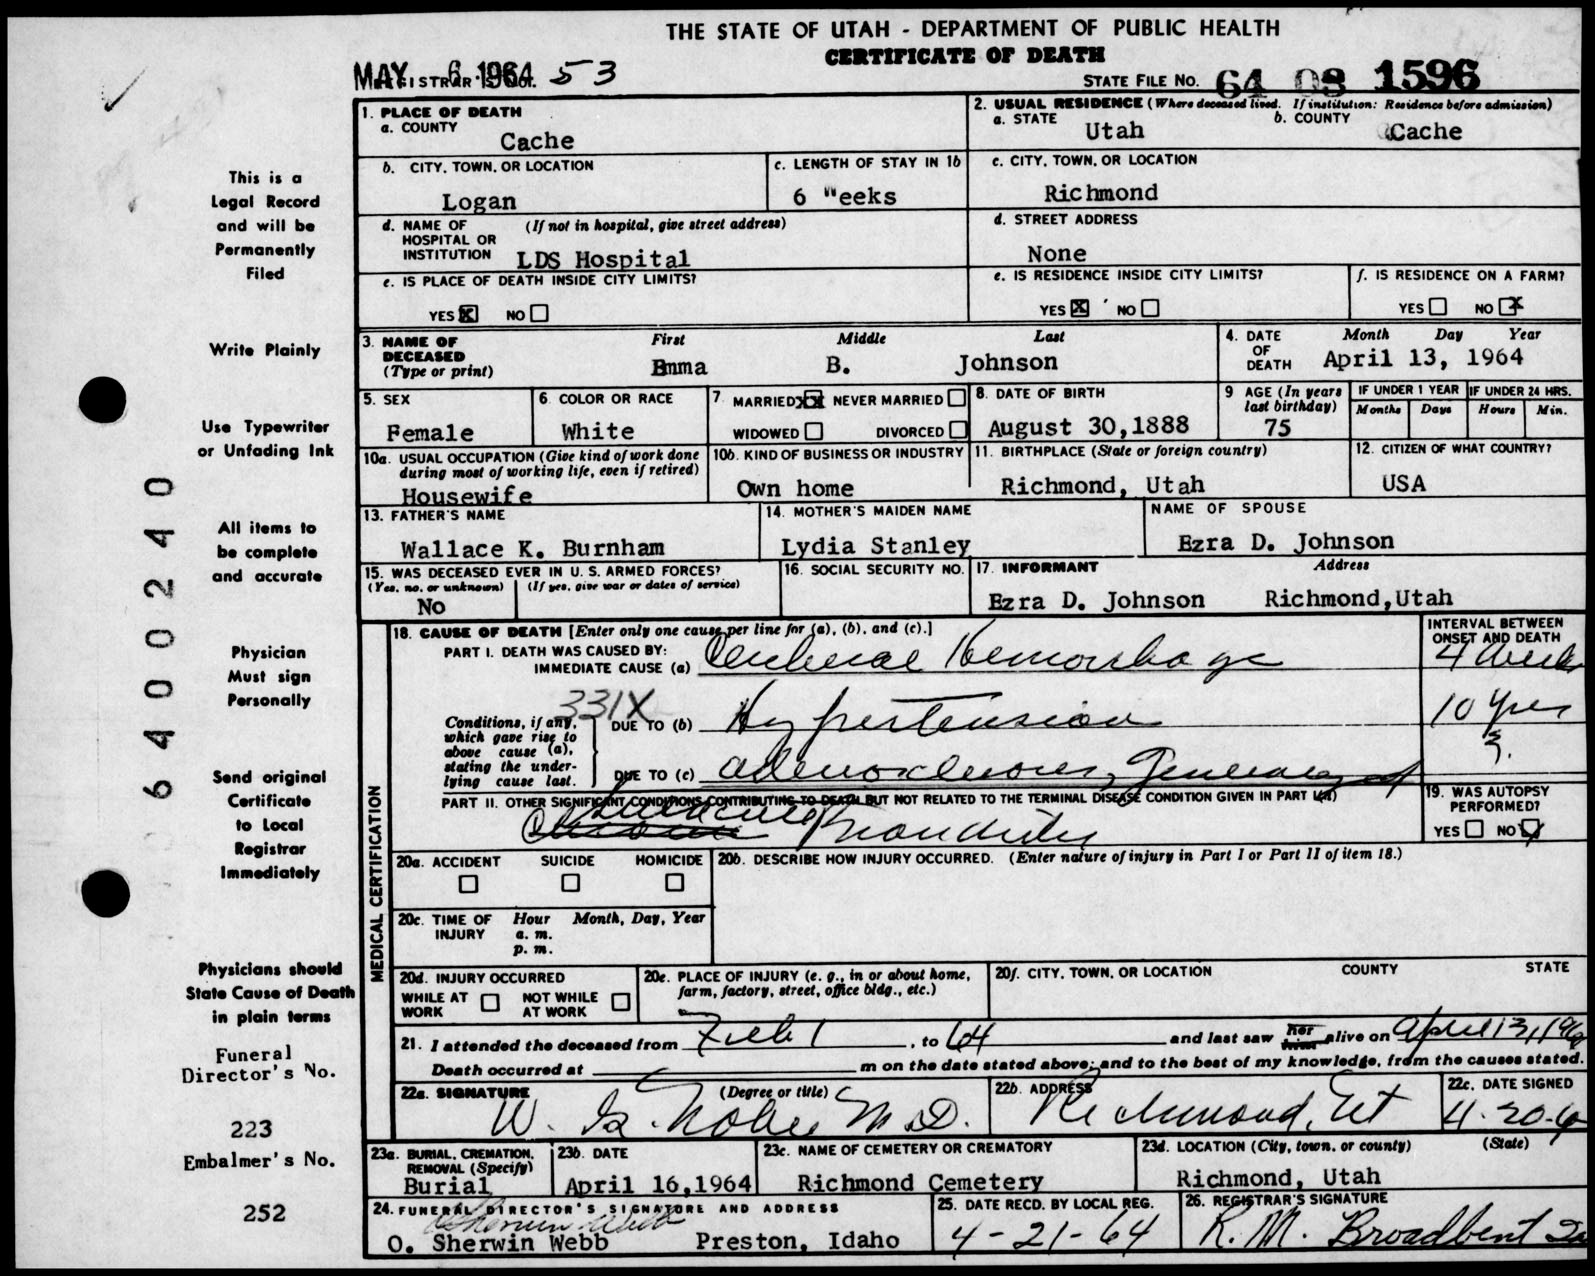 THE STATE OF UTAH - DEPARTMENT OF PUBLIC HEALTH
CERTIFICATE OF DEATH
MAY 6 1964 53
STATE FILE NO. 64 08 1596
This is a
Legal Record
and will be
Permanently
Filed
Write Plainly
Use Typewriter
or Unfading Ink
All items to
be complete
and accurate
Physician
Must sign
Personally
Send original
Certificate
to Local
Registrar
Immediately
Physicians should
State Cause of Death
in plain terms
Funeral
Director's No.
223
Embalmer's No.
252
64 00240
1. PLACE OF DEATH
a. COUNTY
Cache
2. USUAL RESIDENCE (Where deceased lived. If institution: Residence before admission)
a. STATE
Utah
b. COUNTY
Cache
b. CITY, TOWN, OR LOCATION
Logan
c. LENGTH OF STAY IN 1b
6 Weeks
c. CITY, TOWN, OR LOCATION
Richmond
d. NAME OF HOSPITAL OR INSTITUTION (If not in hospital, give street address)
LDS Hospital
d. STREET ADDRESS
None
e. IS PLACE OF DEATH INSIDE CITY LIMITS?
YES X NO
e. IS RESIDENCE INSIDE CITY LIMITS?
YES X NO
f. IS RESIDENCE ON A FARM?
YES NO X
3. NAME OF DECEASED (Type or print)
First Middle Last
Emma B. Johnson
4. DATE OF DEATH
Month Day Year
April 13, 1964
5. SEX
Female
6. COLOR OR RACE
White
7. MARRIED XX NEVER MARRIED
WIDOWED DIVORCED
8. DATE OF BIRTH
August 30,1888
9 AGE (In years last birthday)
75
IF UNDER 1 YEAR
Months Days
IF UNDER 24 HRS.
Hours Min.
10a. USUAL OCCUPATION (Give kind of work done during most of working life, even if retired)
Housewife
10b. KIND OF BUSINESS OR INDUSTRY
Own home
11. BIRTHPLACE (State or foreign country)
Richmond, Utah
12. CITIZEN OF WHAT COUNTRY?
USA
13. FATHER'S NAME
Wallace K. Burnham
14. MOTHER'S MAIDEN NAME
Lydia Stanley
NAME OF SPOUSE
Ezra D. Johnson
15. WAS DECEASED EVER IN U. S. ARMED FORCES?
(Yes, no, or unknown) (If yes, give war or dates of service)
No
16. SOCIAL SECURITY NO.
17. INFORMANT Address
Ezra D. Johnson Richmond,Utah
MEDICAL CERTIFICATION
18. CAUSE OF DEATH [Enter only one cause per line for (a), (b), and (c).]
INTERVAL BETWEEN ONSET AND DEATH
PART I. DEATH WAS CAUSED BY:
IMMEDIATE CAUSE (a) Cerebral Hemorrhage
4 Weeks
331X
Conditions, if any, which gave rise to above cause (a), stating the underlying cause last.
DUE TO (b) Hypertension
10 yrs
DUE TO (c)
?
PART II. OTHER SIGNIFICANT CONDITIONS CONTRIBUTING TO DEATH BUT NOT RELATED TO THE TERMINAL DISEASE CONDITION GIVEN IN PART I(a)
19. WAS AUTOPSY PERFORMED?
YES NO
20a. ACCIDENT SUICIDE HOMICIDE
20b. DESCRIBE HOW INJURY OCCURRED. (Enter nature of injury in Part I or Part II of item 18.)
20c. TIME OF INJURY
Hour Month, Day, Year
a. m.
p. m.
20d. INJURY OCCURRED
WHILE AT WORK NOT WHILE AT WORK
20e. PLACE OF INJURY (e. g., in or about home, farm, factory, street, office bldg., etc.)
20f. CITY, TOWN, OR LOCATION COUNTY STATE
21. I attended the deceased from Feb 1, to 64 and last saw her him alive on April 13, 196
Death occurred at m on the date stated above; and to the best of my knowledge, from the causes stated.
22a. SIGNATURE (Degree or title)
M.D.
22b. ADDRESS
Richmond, Ut
22c. DATE SIGNED
4-20-6
23a. BURIAL, CREMATION, REMOVAL (Specify)
Burial
23b. DATE
April 16,1964
23c. NAME OF CEMETERY OR CREMATORY
Richmond Cemetery
23d. LOCATION (City, town, or county) (State)
Richmond, Utah
24. FUNERAL DIRECTOR'S SIGNATURE AND ADDRESS
O. Sherwin Webb Preston, Idaho
25. DATE RECD. BY LOCAL REG.
4-21-64
26. REGISTRAR'S SIGNATURE
R. M. Broadbent